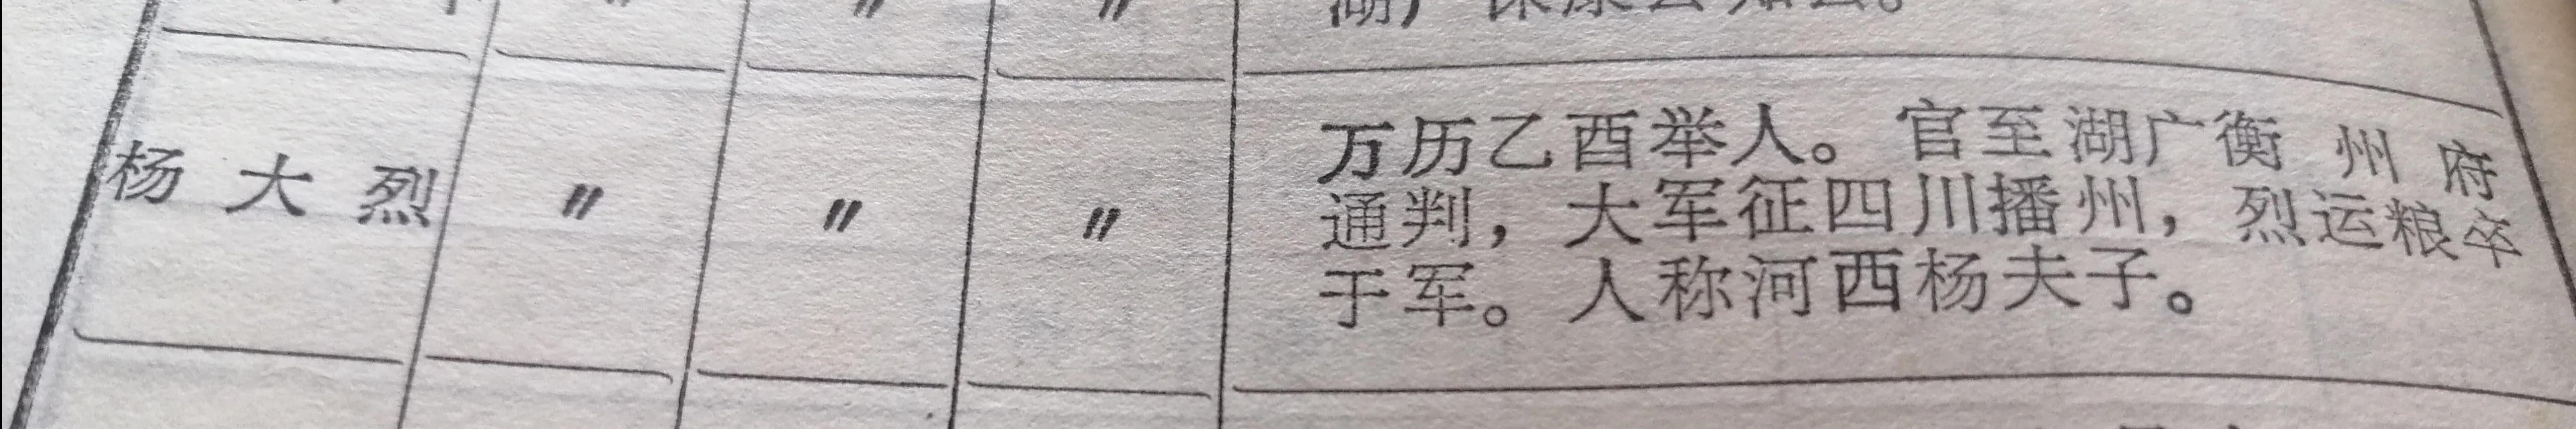 杨大烈 〃 〃 〃 万历乙酉举人。官至湖广衡州府
通判，大军征四川播州，烈运粮卒
于军。人称河西杨夫子。